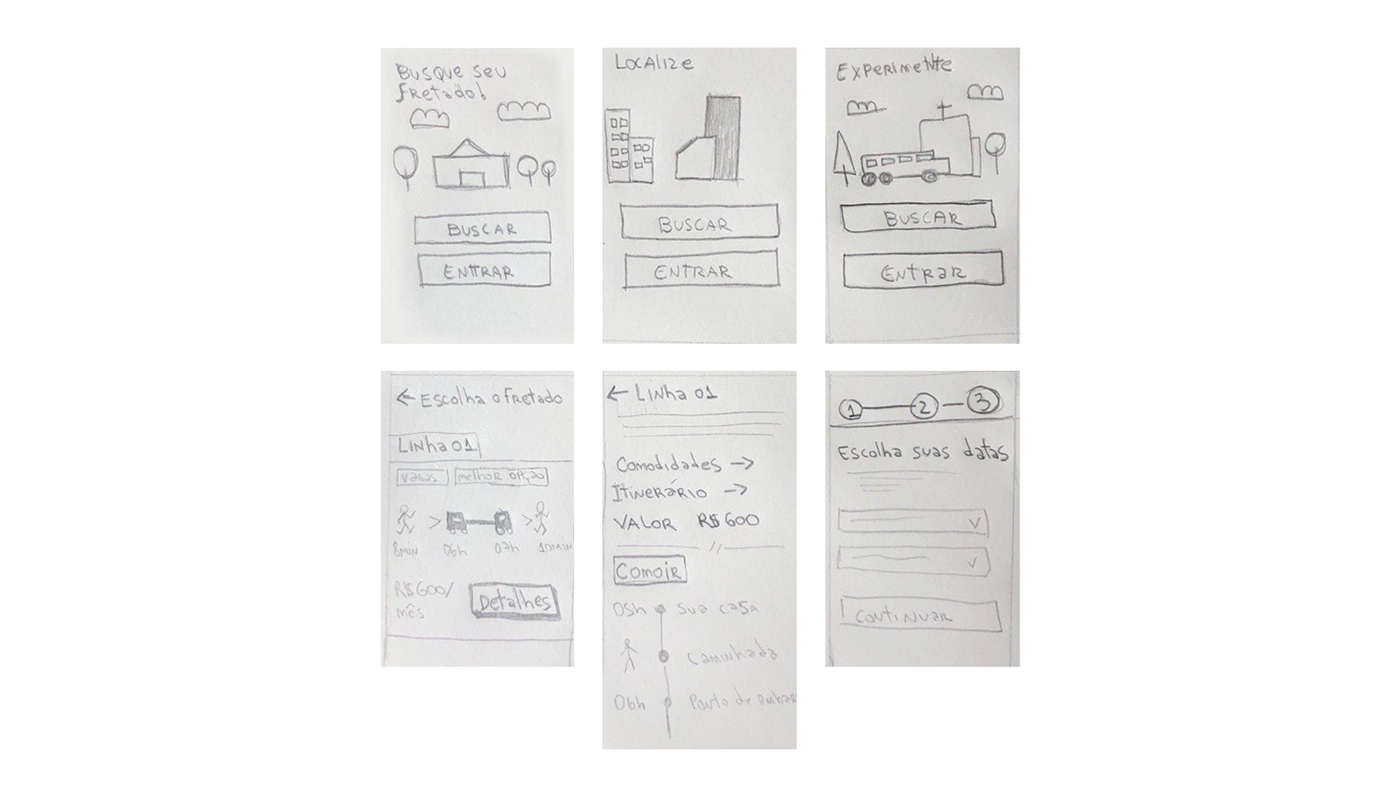 Busque seu
fretado!
BUSCAR
ENTRAR
Localize
BUSCAR
ENTRAR
Experimente
BUSCAR
Entrar
← Escolha o fretado
Linha 01
vagas melhor opção
8min > 06h 07h > 10min
R$600/
mês
Detalhes
← Linha 01
Comodidades →
Itinerário →
VALOR R$600
Como ir
05h Sua casa
Caminhada
06h Ponto de embar
1 2 3
Escolha suas datas
Continuar